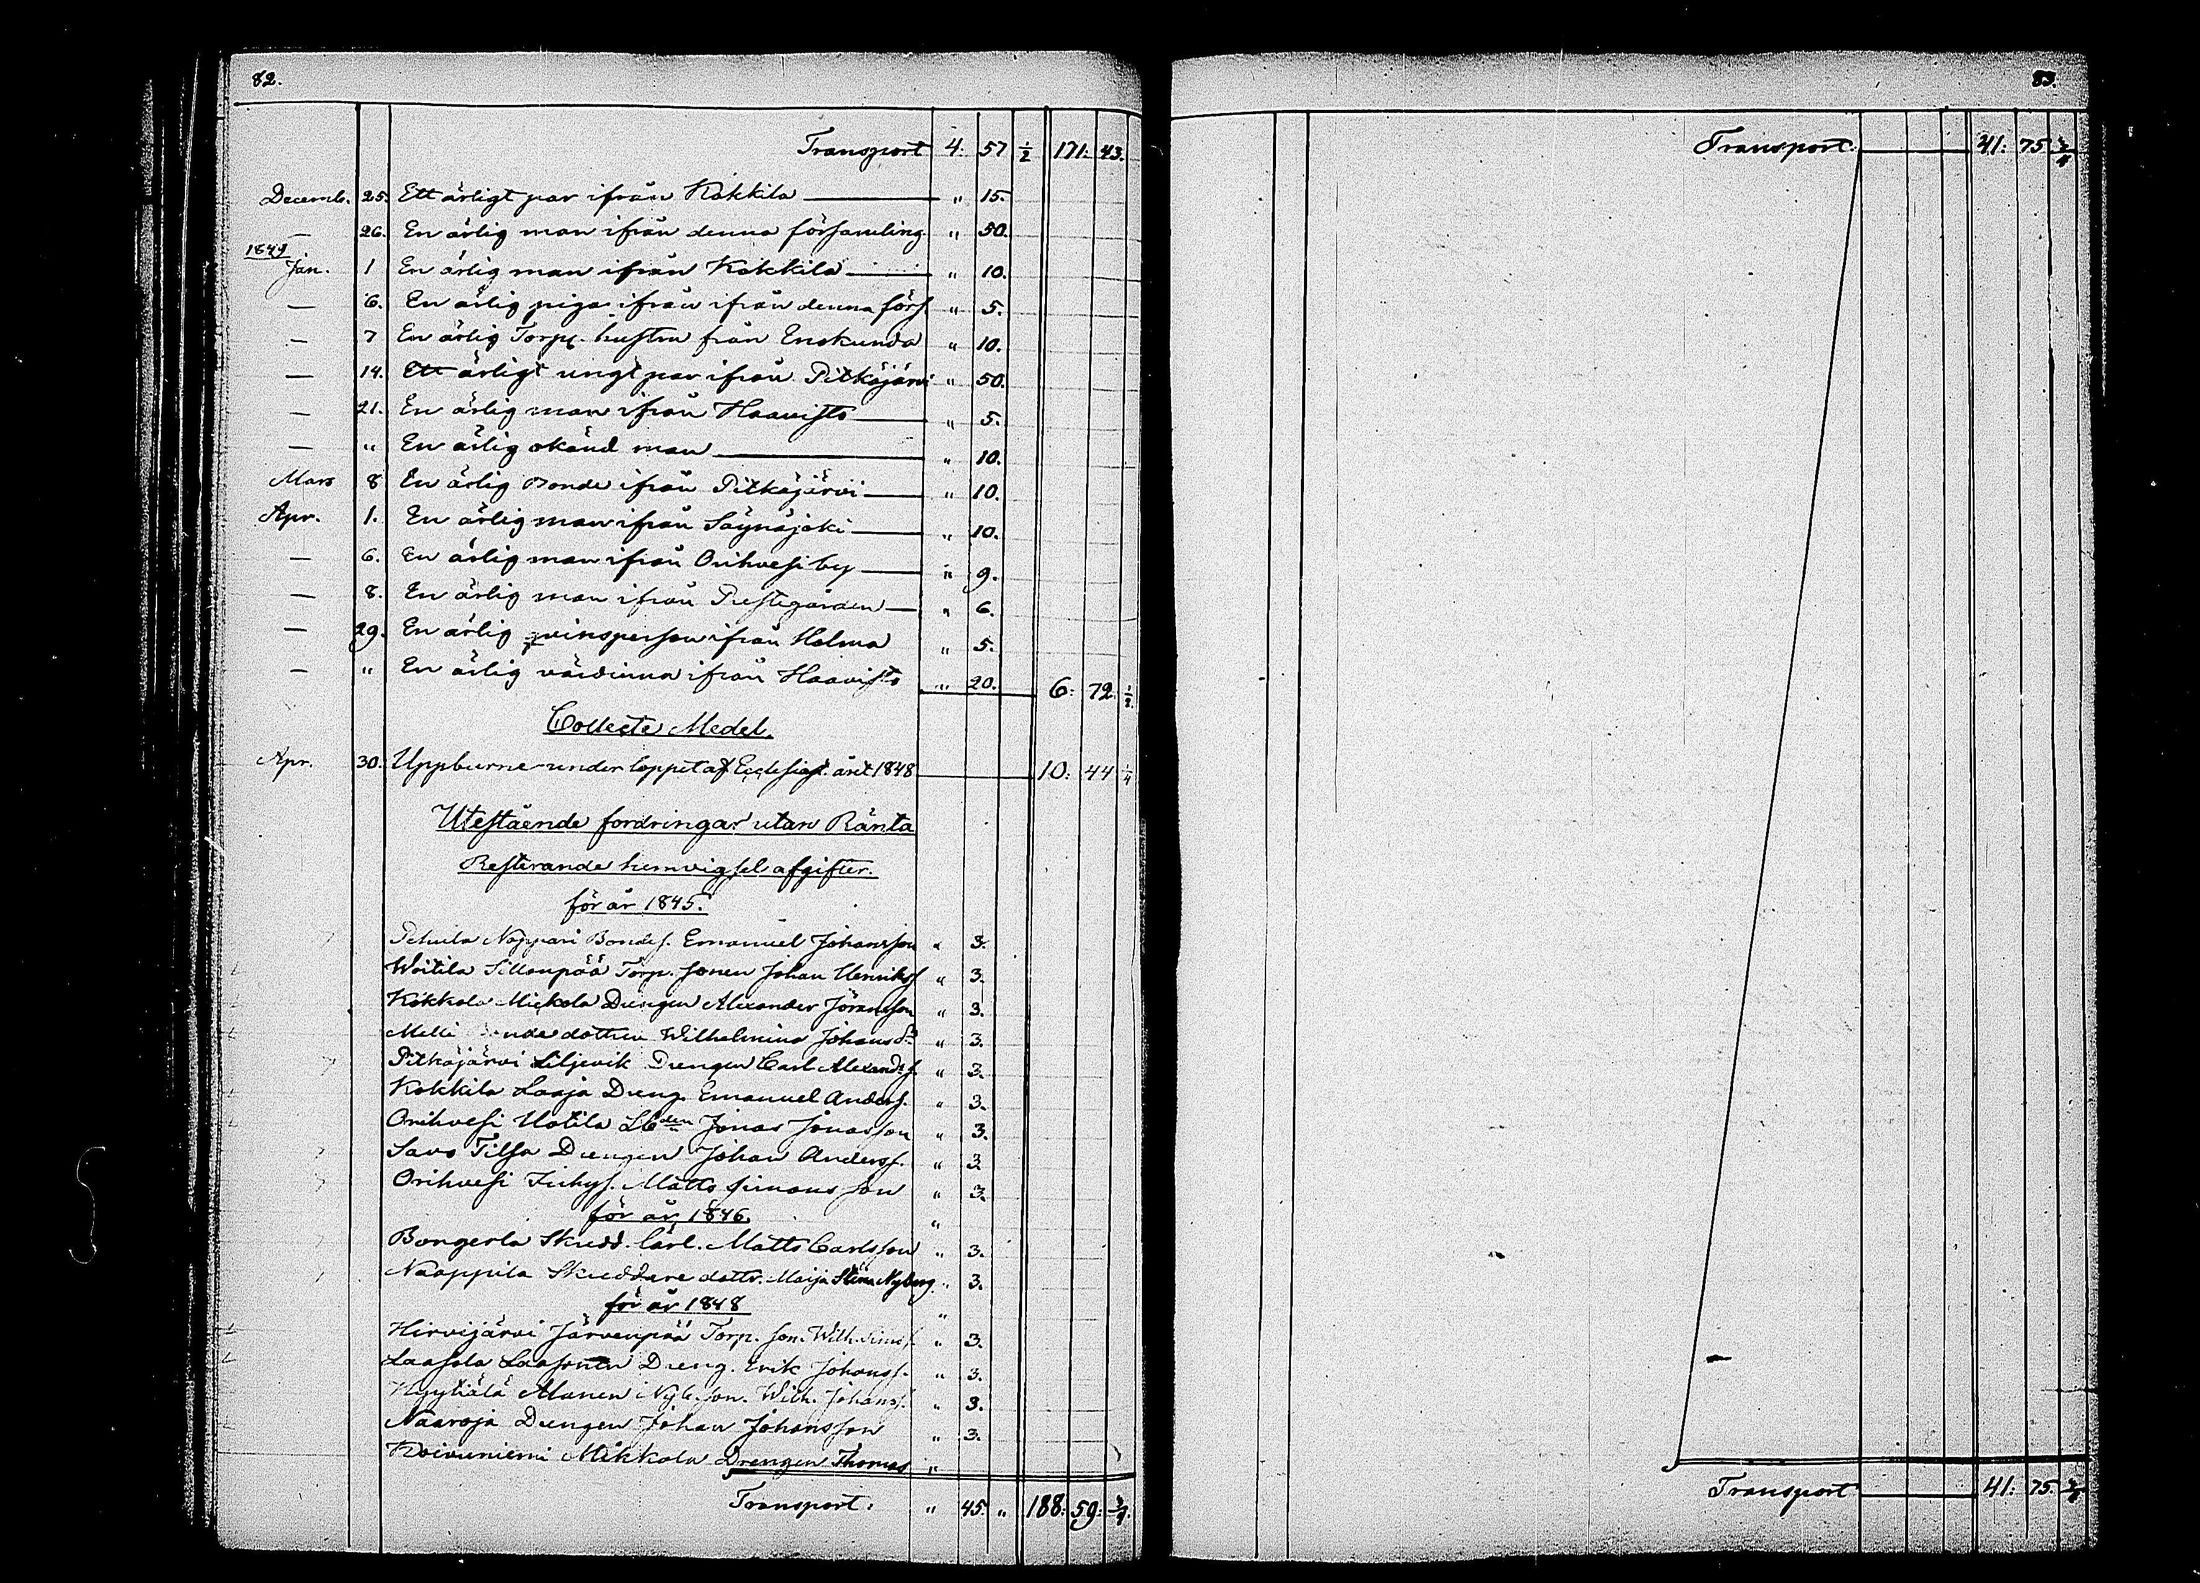 82.
Transport 4. 57 1/2 171. 43.
Decemb. 25. Ett ärligt par ifrån Kokkila " 15.
— 26. En ärlig man ifrån denna församling " 50.
1849
Jan. 1 En ärlig man ifrån Kokkila " 10.
— 6. En ärlig piga ifrån ifrån denna förs. " 5.
— 7 En ärlig Torp. hustru från Enokunda " 10.
— 14. Ett ärligt ungt par ifrån Pitkäjärvi " 50.
— 21. En ärlig man ifrån Haavisto " 5.
— " En ärlig okänd man " 10.
Mars 8 En ärlig Bonde ifrån Pitkäjärvi " 10.
Apr. 1. En ärlig man ifrån Säynäjoki " 10.
— 6. En ärlig man ifrån Orihvesi by " 9.
— 8. En ärlig man ifrån Prestegården " 6.
— 29. En ärlig qvinsperson ifrån Holma " 5.
— " En ärlig värdinna ifrån Haavisto " 20. 6. 72. 1/2.
Collecte Medel.
Apr. 30. Uppburne under loppet af Ecclesiast. året 1848 10. 44 1/4
Utestående fordringar utan Ränta
Resterande hemvigsel afgifter.
för år 1845.
Pehula Noppari Bondes. Emanuel Johansson " 3.
Woitila Sillanpää Torp. sonen Johan Henrikss. " 3.
Kokkola Mickola Drengen Alexander Jöransson " 3.
Melli dottren Wilhelmina Johansdr " 3.
Pitkäjärvi Liljevik Drengen Carl Alexand.s. " 3.
Kokkila Laaja Dreng. Emanuel Anderss. " 3.
Orihvesi Uotila Lbden Jonas Jonasson " 3.
Savo Tilsa Drengen Johan Anderss. " 3.
Orihvesi Inhys. Matts Simonsson " 3.
för år 1846. "
Bongerla Skredd. lärl. Matts Carlsson " 3.
Naappila Skreddare dottr. Maija Stina Nyberg. " 3.
för år 1848 "
Hirvijärvi Järvenpää Torp. son. Wilh. Sims. " 3.
Laasola Laasonen Dreng. Erik Johanss. " 3.
Hyytiälä Alanen Nyb. son. Wilh. Johanss. " 3.
Naaroja Drengen Johan Johansson " 3.
Koivuniemi Mikkola Drengen Thomas "
Transport. " 45. " 188. 59. 3/4.
83.
Transport. 41. 75. 3/4
Transport 41. 75. 3/4